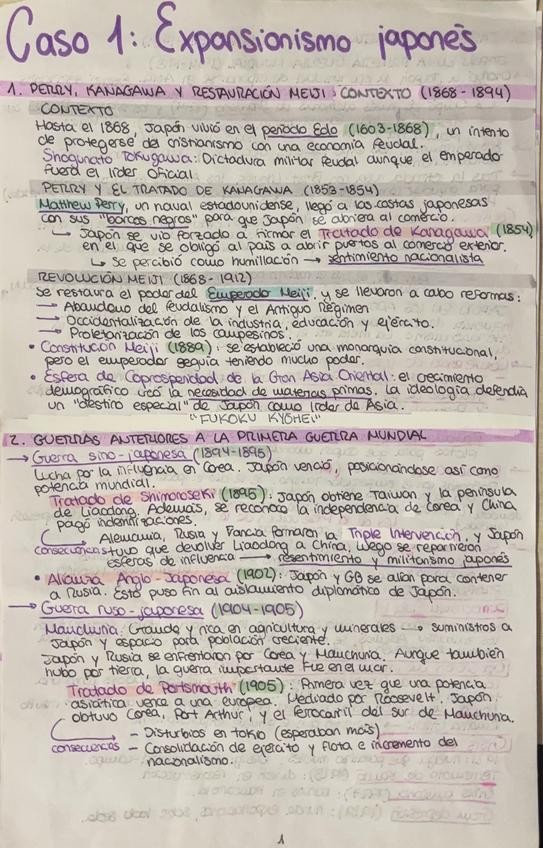 Caso 1: Expansionismo japonés
1. PERRY, KANAGAWA Y RESTAURACIÓN MEIJI: CONTEXTO (1868-1894)
CONTEXTO
Hasta el 1868, Japón vivió en el período Edo (1603-1868), un intento
de protegerse del cristianismo con una economía feudal.
Shogunato Tokugawa: Dictadura militar feudal aunque el emperador
fuera el líder oficial.
PERRY Y EL TRATADO DE KANAGAWA (1853-1854)
Matthew Perry, un naval estadounidense, llegó a las costas japonesas
con sus "barcos negros" para que Japón se abriera al comercio.
↳ Japón se vio forzado a firmar el Tratado de Kanagawa (1854)
en el que se obligó al país a abrir puertos al comercio exterior.
↳ Se percibió como humillación → sentimiento nacionalista
REVOLUCIÓN MEIJI (1868-1912)
Se restaura el poder del Emperador Meiji, y se llevaron a cabo reformas:
→ Abandono del feudalismo y el Antiguo Régimen
→ Occidentalización de la industria, educación y ejército.
→ Proletarización de los campesinos.
• Constitución Meiji (1889): se estableció una monarquía constitucional,
pero el emperador seguía teniendo mucho poder.
• Esfera de Coprosperidad de la Gran Asia Oriental: el crecimiento
demográfico creó la necesidad de materias primas. La ideología defendía
un "destino especial" de Japón como líder de Asia.
"FUKOKU KYOHEI"
2. GUERRAS ANTERIORES A LA PRIMERA GUERRA MUNDIAL
→ Guerra sino-japonesa (1894-1895)
Lucha por la influencia en Corea. Japón venció, posicionándose así como
potencia mundial.
Tratado de Shimonoseki (1895): Japón obtiene Taiwan y la península
de Liaodong. Además, se reconoce la independencia de Corea y China
pagó indemnizaciones.
Alemania, Rusia y Francia formaron la Triple Intervención, y Japón
consecuencias tuvo que devolver Liaodong a China, luego se repartieron
esferas de influencia → resentimiento y militarismo japonés
• Alianza Anglo-Japonesa (1902): Japón y GB se alían para contener
a Rusia. Esto puso fin al aislamiento diplomático de Japón.
→ Guerra ruso-japonesa (1904-1905)
Manchuria: Grande y rica en agricultura y minerales → suministros a
Japón y espacio para población creciente.
Japón y Rusia se enfrentaron por Corea y Manchuria. Aunque también
hubo por tierra, la guerra importante fue en el mar.
Tratado de Portsmouth (1905): Primera vez que una potencia
asiática vence a una europea. Mediado por Roosevelt, Japón
obtuvo Corea, Port Arthur, y el ferrocarril del sur de Manchuria.
- Disturbios en tokio (esperaban más)
consecuencias - Consolidación de ejército y flota e incremento del
nacionalismo.
1